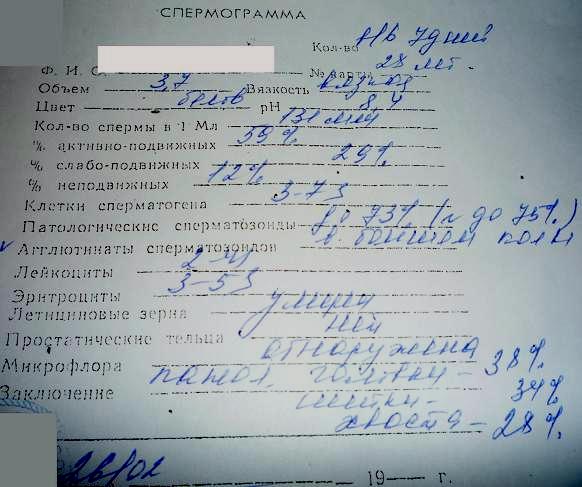 СПЕРМОГРАММА
Кол-во 7 дней
Ф. И. О.
№ карты 28 лет
Объем 3,7 Вязкость вязкая
Цвет pH 8,4
Кол-во спермы в 1 Мл 131 млн
% активно-подвижных 59%
% слабо-подвижных 29%
% неподвижных 12%
Клетки сперматогена 3-7
Патологические сперматозоиды до 73% (N до 75%)
Агглютинаты сперматозоидов в каждом поле
Лейкоциты 2-4
Эритроциты 3-5
Летициновые зерна умерен
Простатические тельца нет
Микрофлора обнаружена
Заключение патол. головки - 38%
шейки - 34%
хвоста - 28%
26/02 19 — г.